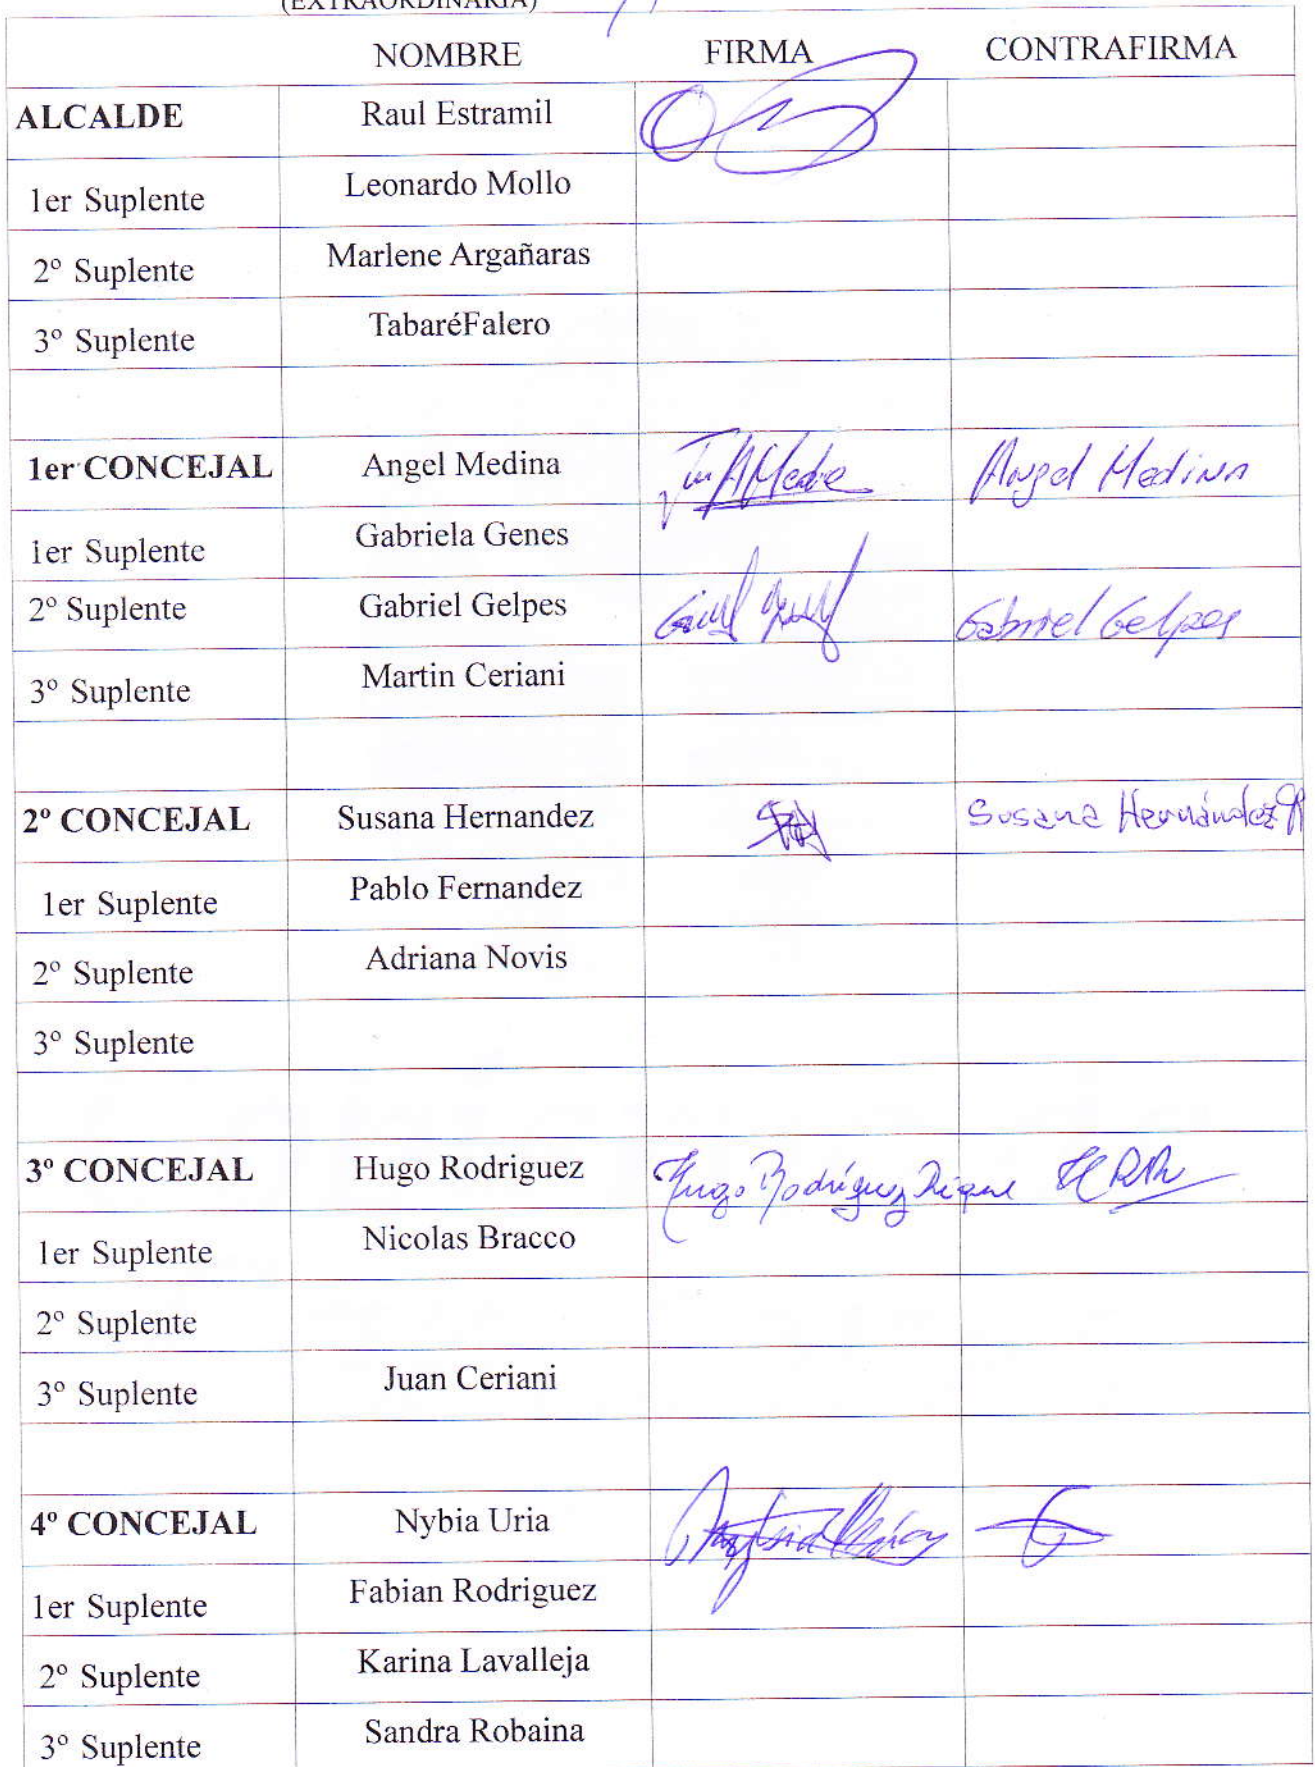 (EXTRAORDINARIA)
NOMBRE FIRMA CONTRAFIRMA
ALCALDE Raul Estramil
1er Suplente Leonardo Mollo
2º Suplente Marlene Argañaras
3º Suplente TabaréFalero
1er CONCEJAL Angel Medina Angel Medina
1er Suplente Gabriela Genes
2º Suplente Gabriel Gelpes Gabriel Gelpes
3º Suplente Martin Ceriani
2º CONCEJAL Susana Hernandez Susana Hernández
1er Suplente Pablo Fernandez
2º Suplente Adriana Novis
3º Suplente
3º CONCEJAL Hugo Rodriguez Hugo Rodríguez
1er Suplente Nicolas Bracco
2º Suplente
3º Suplente Juan Ceriani
4º CONCEJAL Nybia Uria
1er Suplente Fabian Rodriguez
2º Suplente Karina Lavalleja
3º Suplente Sandra Robaina